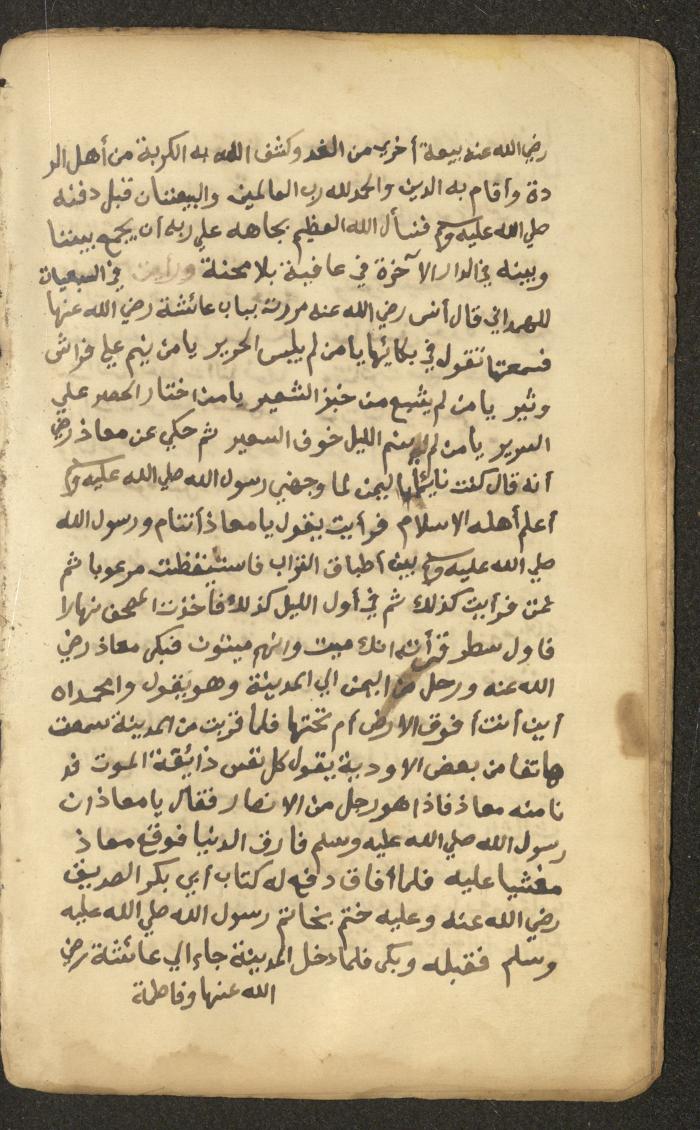 رضي الله عنه بيعة أخرى من الغد وكشف الله به الكربة من أهل الر
دة وأقام به الدين والحمد لله رب العالمين والبيعتان قبل دفنه
صلي الله عليه وسلم فنسأل الله العظيم بجاهه علي ربه أن يجمع بيننا
وبينه في الدار الآخرة في عافية بلا محنة ورأيت في السبعيات
للهمداني قال أنس رضي الله عنه مررت بباب عائشة رضي الله عنها
فسمعتها تقول في بكائها يا من لم يلبس الحرير يا من لم ينم علي فراش
وثير يا من لم يشبع من خبز الشعير يا من اختار الحصير علي
السرير يا من لم ينم الليل خوف السعير ثم حكي عن معاذ رضي
أنه قال كنت نائما باليمن لما وجهني رسول الله صلي الله عليه وسلم
أعلم أهله الاسلام فرأيت يقول يا معاذ أتنام ورسول الله
صلي الله عليه وسلم بين أطباق التراب فاستيقظت مرعوبا ثم
نمت فرأيت كذلك ثم في أول الليل كذلك فأخذت المصحف نهارا
فاول سطر قرأته انك ميت وانهم ميتون فبكى معاذ رضي
الله عنه ورحل من اليمن الي المدينة وهو يقول وامحمداه
أين أنت أفوق الارض أم تحتها فلما قربت من المدينة سمعت
هاتفا من بعض الاودية يقول كل نفس ذائقة الموت فد
نا منه معاذ فاذا هو رجل من الانصار فقال يا معاذ ان
رسول الله صلي الله عليه وسلم فارق الدنيا فوقع معاذ
مغشيا عليه فلما أفاق دفع له كتاب أبي بكر الصديق
رضي الله عنه وعليه ختم بخاتم رسول الله صلي الله عليه
وسلم فقبله وبكى فلما دخل المدينة جاء الي عائشة رضي
الله عنها وفاطمة